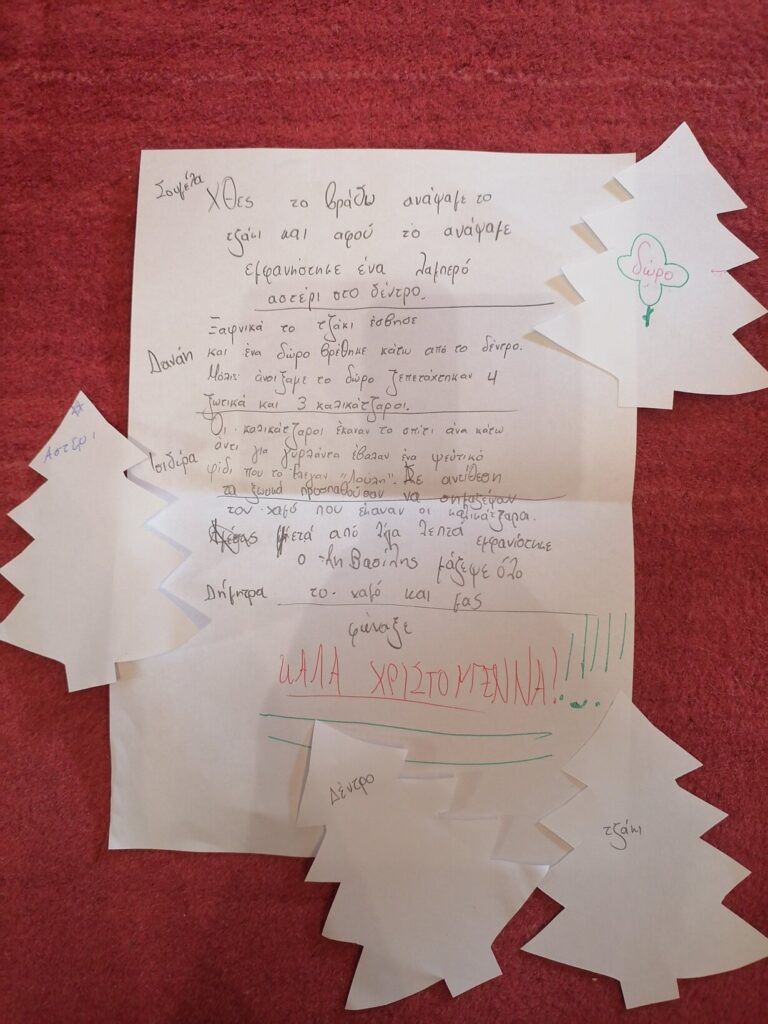 Σουμέλα
Χθες το βράδυ ανάψαμε το
τζάκι και αφού το ανάψαμε
εμφανήστηκε ένα λαμπερό
αστέρι στο δέντρο.
Ξαφνικά το τζάκι έσβησε
Δανάη
και ένα δώρο βρέθηκε κάτω από το δέντρο.
Μόλις ανοίξαμε το δώρο ξεπετάχτηκαν 4
ξωτικά και 3 καλικάτζαροι.
Οι καλικάτζαροι έκαναν το σπίτι άνα κάτω
Ισιδώρα
άντι για γυρλάντα έβαλαν ένα ψεύτικο
φίδι που το έλεγαν "Λούλη". Σε αντίθεση
τα ξωτικά προσπαθούσαν να
τον χαμό που έκαναν οι καλικάτζαροι.
Μετά από λίγα λεπτά εμφανίστηκε
ο Άη Βασίλης μάζεψε όλο
Δήμητρα
το χαμό και μας
φώναξε
ΚΑΛΑ ΧΡΙΣΤΟΥΓΕΝΝΑ!
δώρο
Αστέρι
Δέντρο
τζάκι